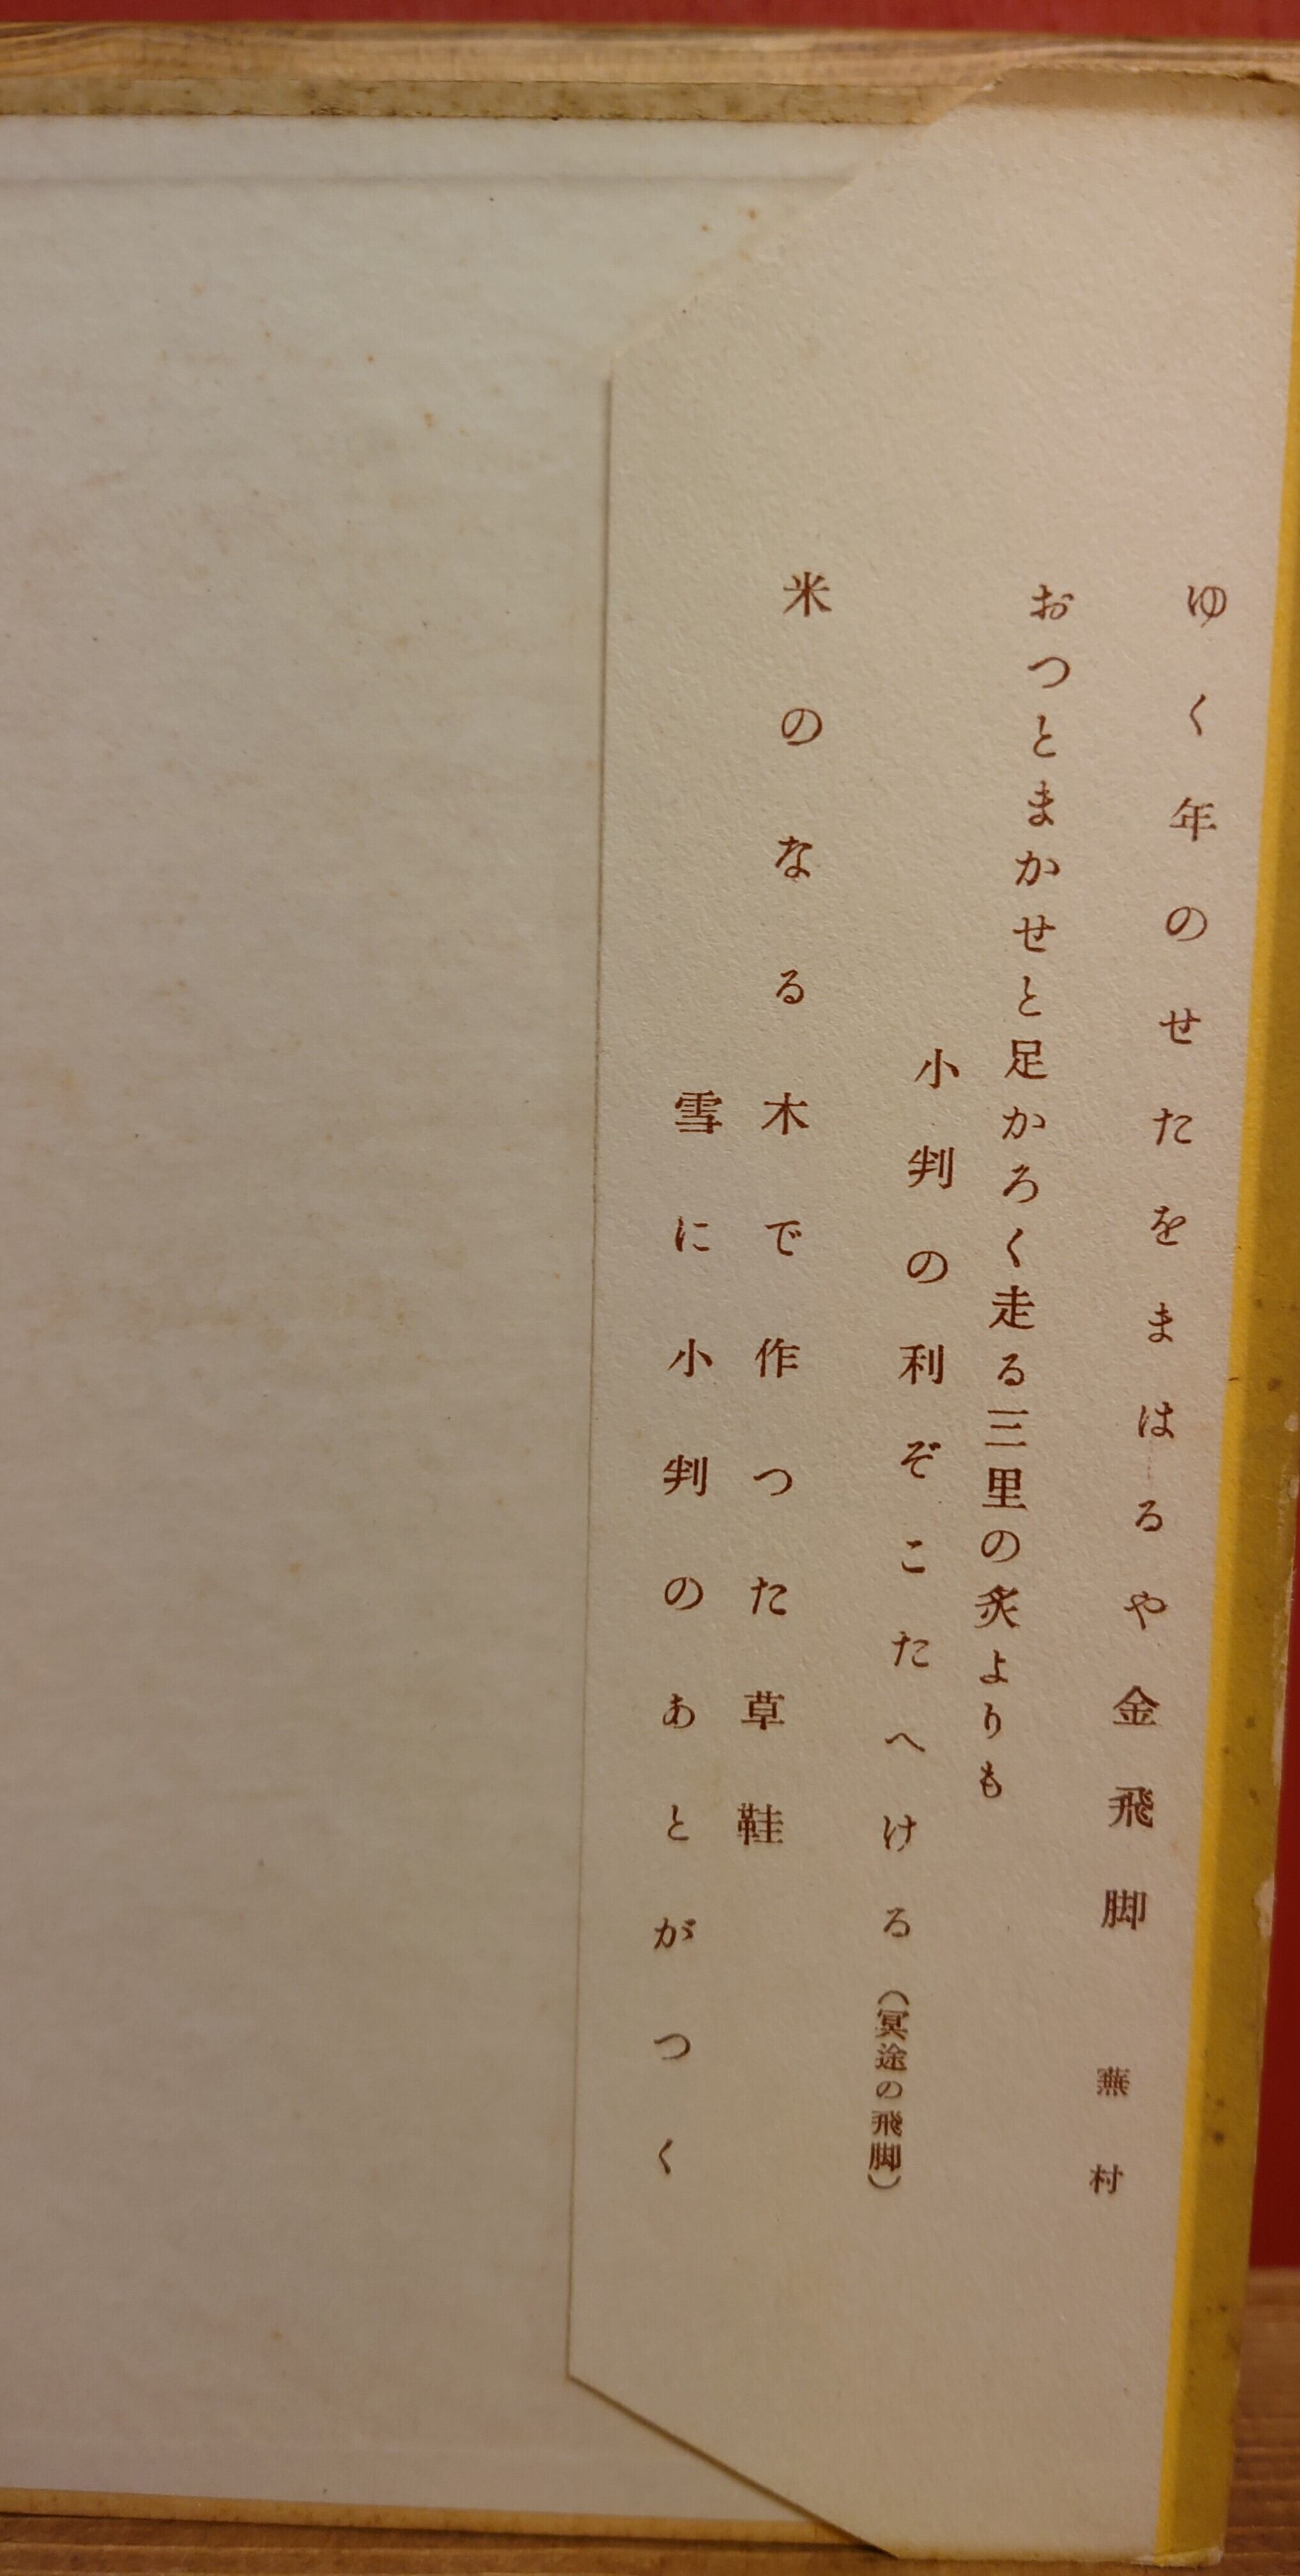 ゆく年のせたをまはるや金飛脚　蕪村
おつとまかせと足かろく走る三里の炙よりも
小判の利ぞこたへける（冥途の飛脚）
米のなる木で作つた草鞋
雪に小判のあとがつく